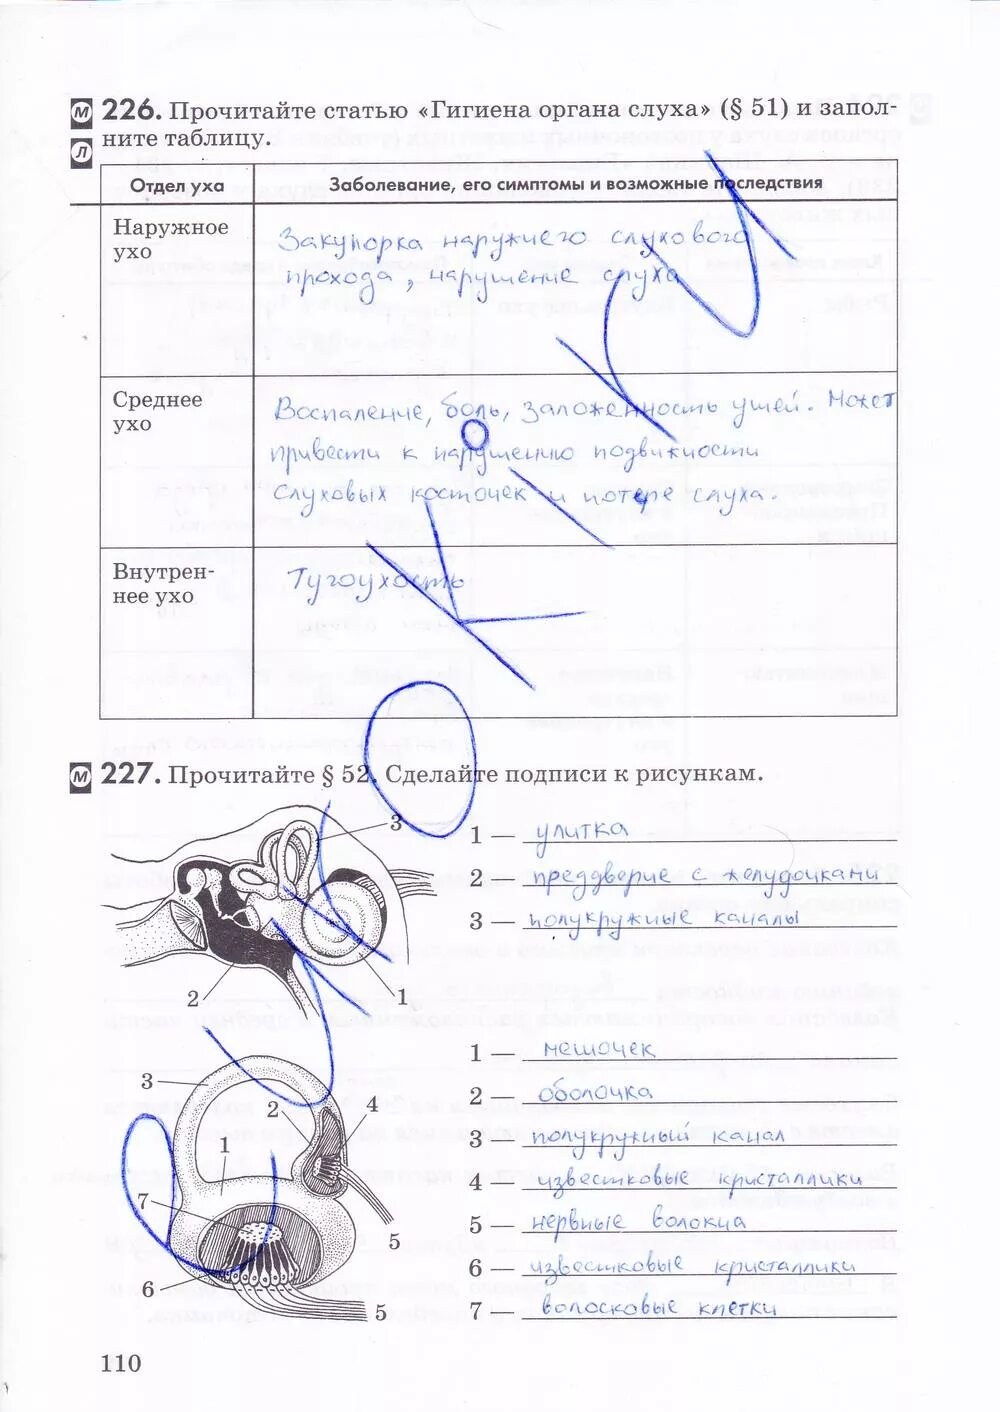 М 226. Прочитайте статью «Гигиена органа слуха» (§ 51) и запол-
Л ните таблицу.
Отдел уха Заболевание, его симптомы и возможные последствия
Наружное
ухо
Закупорка наружнего слухового
прохода, нарушение слуха
Среднее
ухо
Воспаление, боль, заложенность ушей. Может
привести к нарушению подвижности
слуховых косточек и потере слуха.
Внутрен-
нее ухо
Тугоухость
М 227. Прочитайте § 52. Сделайте подписи к рисункам.
3
2
1
1 — улитка
2 — преддверие с желудочками
3 — полукружные каналы
3
2
4
1
7
5
6
5
1 — мешочек
2 — оболочка
3 — полукружный канал
4 — известковые кристаллики
5 — нервные волокна
6 — известковые кристаллики
7 — волосковые клетки
110